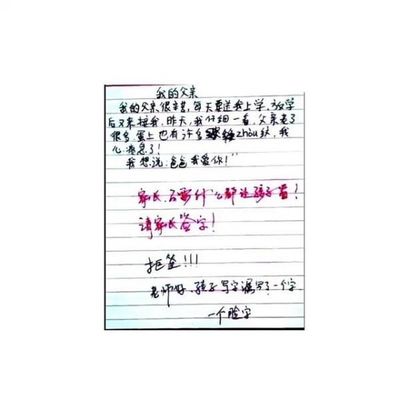 我的父亲
我的父亲很辛苦,每天要送我上学,放学
后又来接我,昨天,我仔细一看,父亲老了
很多,蛋上也有许多zhòu纹,我
心疼急了!
我想说,爸爸我爱你!"
家长,不要什么都让孩子看!
请家长签字!
拒签!!!
老师好,孩子写字漏写了一个字
一个脸字